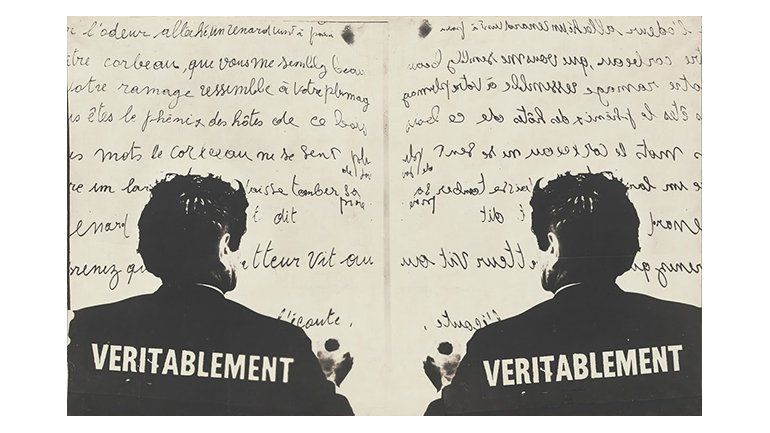 r l'odeur alléché, un renard vint à
itre corbeau, que vous me semblez beau
votre ramage ressemble à votre plumag
us êtes le phénix des hôtes de ce bois
s mots le corbeau ne se sent plu
de joi
re un lar aisse tomber sa
proie
enard i dit
renez qu etteur vit au
l'écoute,
VERITABLEMENT
VERITABLEMENT